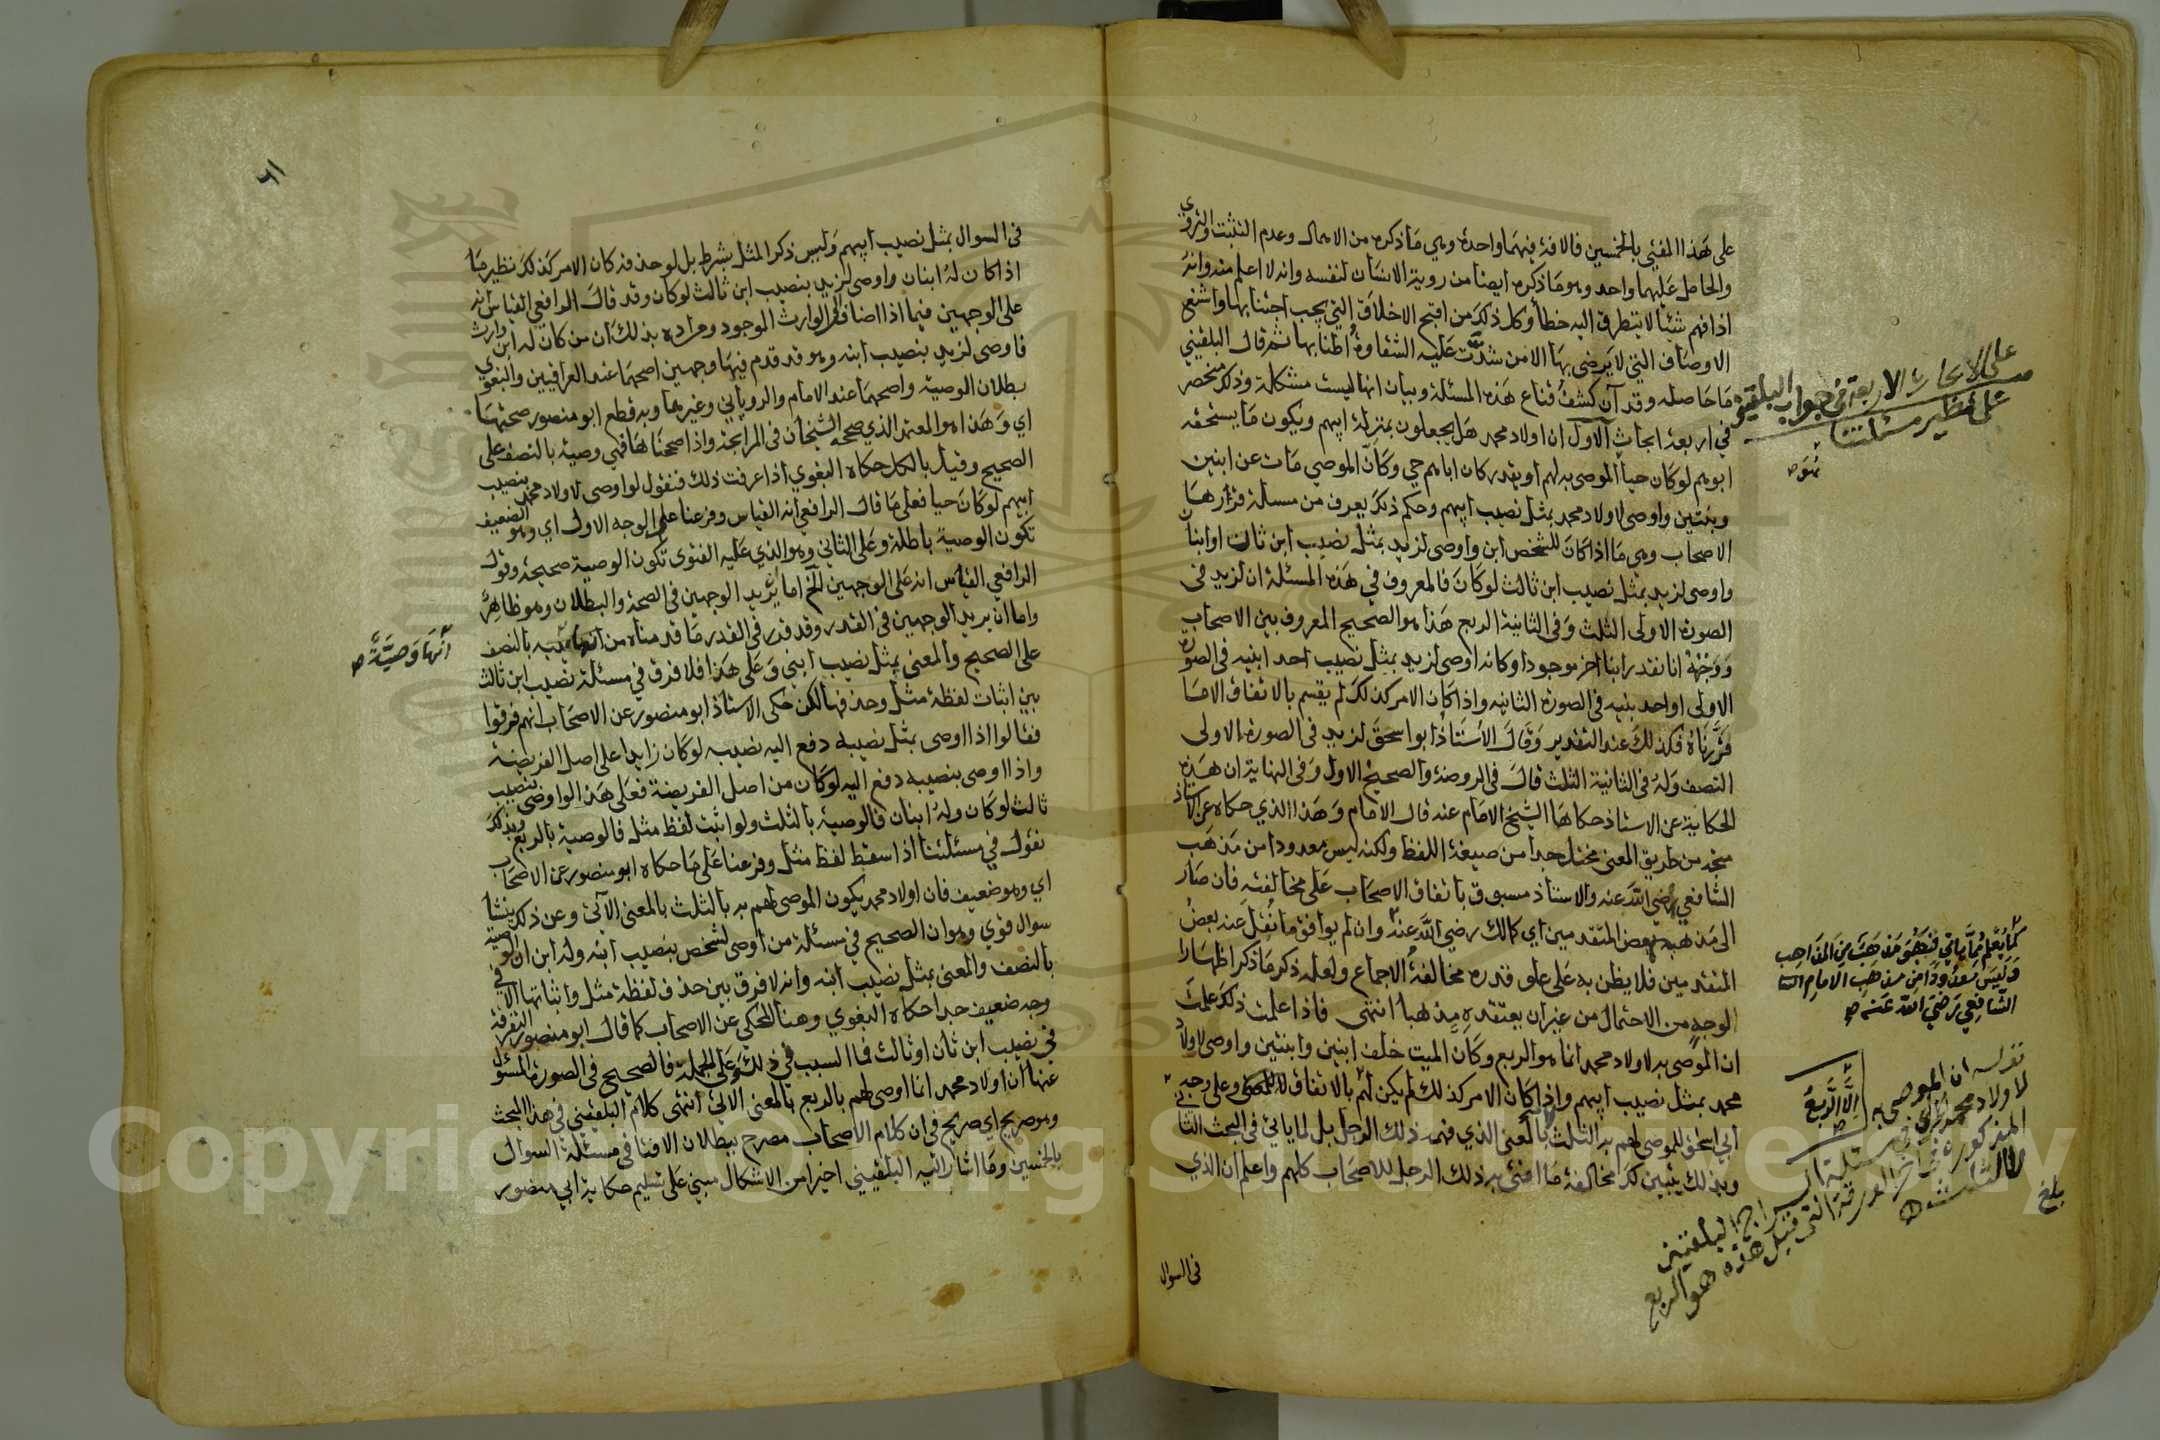 على هذا المفتي بالخمسين فالافة فيهما واحدة وهي ما ذكره من الامال وعدم التثبت والتروي
والحامل عليهما واحد وهو ما ذكره ايضا من روية الانسان لنفسه وانه لا اعلم منه وانه
اذا فهم شيئا لا يتطرق اليه خطأ وكل ذلك من اقبح الاخلاق التي يجب اجتنابها واشنع
الاوصاف التي لا يرضى بها الا من شدت عليه الشقاوة اطنابها ثم قال البلقيني
ما حاصله وقد آن كشف قناع هذه المسئلة وبيان انها ليست مشكلة وذلك منحصر
في اربعة ابحاث الاول ان اولاد محمد هل يجعلون بمنزلة ابيهم ويكون ما يستحقه
ابوهم لو كان حيا الموصى به لهم او يقدر كان اباهم حي وكان الموصي مات عن ابنين
وبنتين واوصى لاولاد محمد بمثل نصيب ابيهم وحكم ذلك يعرف من مسئلة قررها
الاصحاب وهي ما اذا كان للشخص ابن واوصى لزيد بمثل نصيب ابن ثان او ابنان
واوصى لزيد بمثل نصيب ابن ثالث لو كان فالمعروف في هذه المسئلة ان لزيد في
الصورة الاولى الثلث وفي الثانية الربع هذا هو الصحيح المعروف بين الاصحاب
ووجهه انا نقدر ابنا اخر موجودا وكانه اوصى لزيد بمثل نصيب احد ابنيه في الصورة
الاولى او احد بنيه في الصورة الثانية واذا كان الامر كذلك لم يقسم بالاتفاق الا ما
قررناه فكذلك عند التقدير وقال الاستاذ ابو اسحق لزيد في الصورة الاولى
النصف وله في الثانية الثلث قال في الروضة والصحيح الاول وفي النهاية ان هذه
الحكاية عن الاستاذ حكاها الشيخ الامام عنه قال الامام وهذا الذي حكاه عن الاستاذ
متجه من طريق المعنى مختل جدا من صيغة اللفظ ولكنه ليس معدودا من مذهب
الشافعي رضي الله عنه والاستاذ مسبوق باتفاق الاصحاب على مخالفته فان صار
الى مذهبه بعض المتقدمين اي كمالك رضي الله عنه وان لم يوافق ما نقل عنه بعض
المتقدمين فلا يظن به على علو قدره مخالفة الاجماع ولعله ذكر ما ذكر اظهارا
لوجه من الاحتمال من غير ان يعتقده مذهبا انتهى فاذا علمت ذلك علمت
ان الموصى به لاولاد محمد انما هو الربع وكان الميت خلف ابنين وابنتين واوصى لاولاد
محمد بمثل نصيب ابيهم واذا كان الامر كذلك لم يكن لهم بالاتفاق وعلى وجه
ابي اسحق للموصى لهم به الثلث بالمعنى الذي فهمه ذلك الرجل بل لما ياتي في البحث الثاني
وبذلك يتبين لك مخالفة ما افتى به ذلك الرجل للاصحاب كلهم واعلم ان الذي
في السوال
على الابحاث الاربعة في جواب البلقيني
على نظير مسئلتنا
كما يعلم مما ياتي فيجهو مذهب من المذاهب
وليس معدودا من مذهب الامام
الشافعي رضي الله عنه صح
الا الربع
صح
قوله ان الموصى به
لاولاد محمد
مسئلة السراج البلقيني
هو الربع
بلغ
٦١
في السوال بمثل نصيب ابيهم وليس ذكر المثل بشرط بل لو حذفه كان الامر كذلك نظير ما
اذا كان له ابنان واوصى لزيد بنصيب ابن ثالث لو كان وقد قال الرافعي القياس انه
على الوجهين فيما اذا اضاف الى الوارث الموجود ومراده بذلك ان من كان له ابن وارث
فاوصى لزيد بنصيب ابنه وهو قد قدم فيها وجهين اصحهما عند العراقيين والبغوي
بطلان الوصية واصحهما عند الامام والروياني وغيرها وبه قطع ابو منصور صحتها
اي وهذا هو المعتمد الذي صححه الشيخان في المرابحة واذا صححناها فهي وصية بالنصف على
الصحيح وقيل بالكل حكاه البغوي اذا عرفت ذلك فنقول لو اوصى لاولاد محمد بنصيب
ابيهم لو كان حيا فعلى ما قال الرافعي انه القياس وفرعنا على الوجه الاول اي وهو الضعيف
تكون الوصية باطلة وعلى الثاني وهو الذي عليه الفتوى تكون الوصية صحيحة وقول
الرافعي القياس انه على الوجهين الخ اما يريد الوجهين في الصحة والبطلان وهو ظاهر
واما ان يريد الوجهين في القدر وقد قدر في القدر ما قدمناه من انها بالنصف
على الصحيح والمعنى بمثل نصيب ابني وعلى هذا فلا فرق في مسئلة نصيب ابن ثالث
بين اثبات لفظة مثل وحذفها لكن حكى الاستاذ ابو منصور عن الاصحاب انهم فرقوا
فقالوا اذا اوصى بمثل نصيبه دفع اليه نصيبه لو كان زايدا على اصل الفريضة
واذا اوصى بنصيبه دفع اليه لو كان من اصل الفريضة فعلى هذا لو اوصى بنصيب
ثالث لو كان وله ابنان فالوصية بالثلث ولو اثبت لفظ مثل فالوصية بالربع وبذلك
نقول في مسئلتنا اذا سقط لفظ مثل وفرعنا على ما حكاه ابو منصور عن الاصحاب
اي وهو ضعيف فان اولاد محمد يكون الموصى لهم به بالثلث بالمعنى الآتي وعن ذلك ينشا
سوال قوي وهو ان الصحيح في مسئلة من اوصى لشخص بنصيب ابنه وله ابن ان الوصية
بالنصف والمعنى بمثل نصيب ابنه وانه لا فرق بين حذف لفظة مثل واثباتها الا في
وجه ضعيف جدا حكاه البغوي وهنا المحكي عن الاصحاب كما قال ابو منصور التفرقة
في نصيب ابن ثان او ثالث فما السبب في ذلك وعلى الجملة فالصحيح في الصورة المسئول
عنها ان اولاد محمد انما اوصى لهم بالربع بالمعنى الآتي انتهى كلام البلقيني في هذا البحث
وهو صريح اي صريح في ان كلام الاصحاب مصرح ببطلان الافتا في مسئلة السوال
بالخمسين وما اشار اليه البلقيني اخيرا من الاشكال مبني على تسليم حكاية ابي منصور
انها وصية صح
Copyright © King Saud University